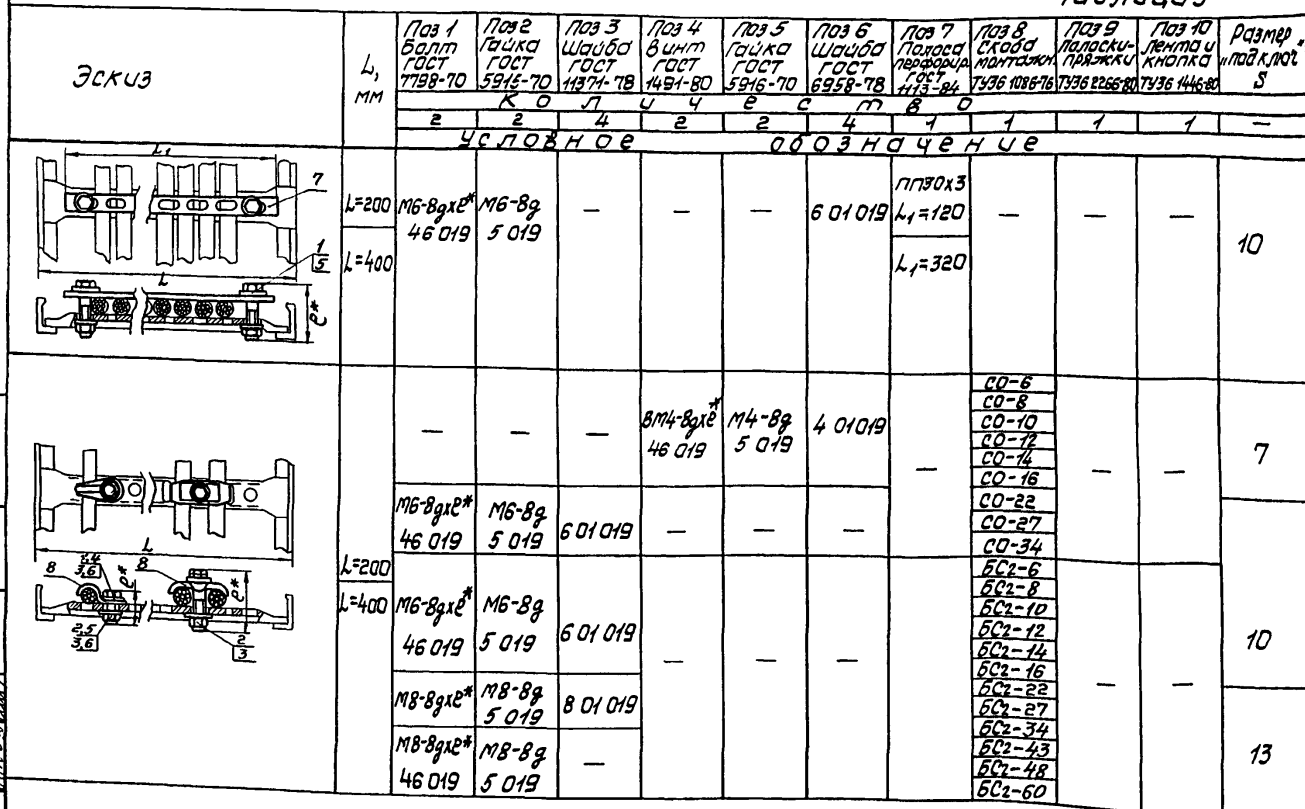 Эскиз
L,
мм
Поз 1
Болт
ГОСТ
7798-70
Поз 2
Гайка
ГОСТ
5915-70
Поз 3
Шайба
ГОСТ
11371-78
Поз 4
Винт
ГОСТ
1491-80
Поз 5
Гайка
ГОСТ
5916-70
Поз 6
Шайба
ГОСТ
6958-78
Поз 7
Полоса
перфорир.
ГОСТ
1113-84
Поз 8
Скоба
монтажн.
ТУ36 1086-76
Поз 9
Полоски-
пряжки
ТУ36 2266-80
Поз 10
Лента и
кнопка
ТУ36 1446-80
Размер
„под ключ"
S
Количество
2 2 4 2 2 4 1 1 1 1 —
Условное обозначение
L₁
7
L
1
5
ℓ*
L=200
L=400
М6-8gxℓ*
46 019
М6-8g
5 019
—
—
—
6 01 019
ПП30х3
L₁=120
L₁=320
—
—
—
10
L
8
1,4
3,6
ℓ*
8
ℓ*
2,5
3,6
2
3
L=200
L=400
—
—
—
ВМ4-8gxℓ*
46 019
М4-8g
5 019
4 01 019
—
СО-6
СО-8
СО-10
СО-12
СО-14
СО-16
—
—
7
М6-8gxℓ*
46 019
М6-8g
5 019
6 01 019
—
—
—
СО-22
СО-27
СО-34
М6-8gxℓ*
46 019
М6-8g
5 019
6 01 019
—
—
—
—
БС2-6
БС2-8
БС2-10
БС2-12
БС2-14
БС2-16
—
—
10
М8-8gxℓ*
М8-8g
5 019
8 01 019
БС2-22
БС2-27
БС2-34
М8-8gxℓ*
46 019
М8-8g
5 019
—
БС2-43
БС2-48
БС2-60
13